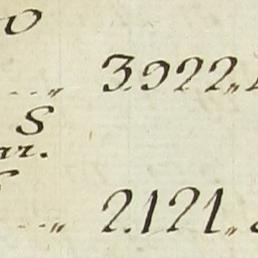 o
....„ 3.922„
S
ar.
....„ 2.121„